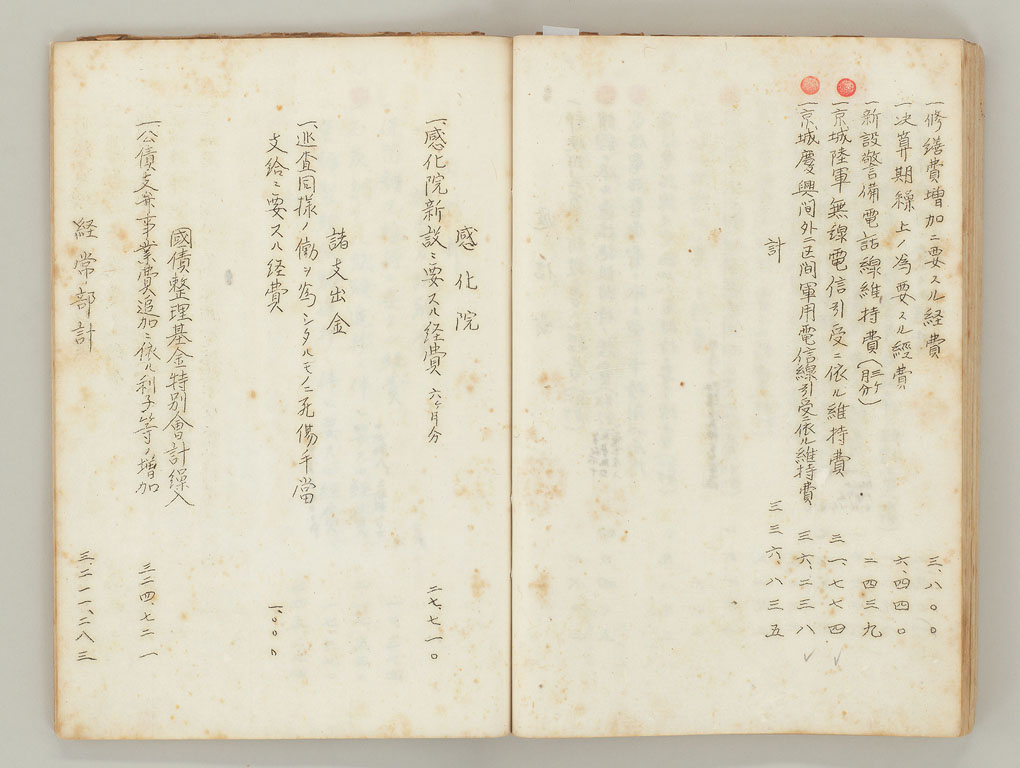 一修繕費増加ニ要スル経費 三、八〇〇
一決算期繰上ノ為要スル経費 六、四四〇
一新設警備電話線維持費 二四三九
一京城陸軍無線電信引受ニ依ル維持費 三一、七七四
一京城慶興間外二区間軍用電信線引受ニ依ル維持費 三六、二三八
計 三三六、八三五
感化院
一、感化院新設ニ要スル経費 六ヶ月分 二七、七一〇
諸支出金
一、巡査同様ノ働ヲ為シタルモノニ死傷手當
支給ニ要スル経費 一、〇〇〇
國債整理基金特別會計繰入
一、公債支弁事業費追加ニ依ル利子等ノ増加 三二四、七二一
経常部計 三、二一一、二八三